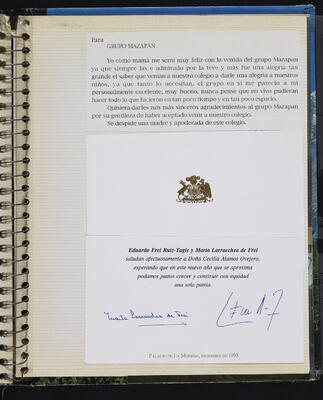 Para
GRUPO MAZAPAN
Yo como mamá me sentí muy feliz con la venida del grupo Mazapan
ya que siempre las e admirado por la teve y más fue una alegría tan
grande el saber que venían a nuestro colegio a darle una alegría a nuestros
niños, ya que tanto lo necesitan, el grupo en si me pareció a mi
personalmente excelente, muy bueno, nunca pense que en vivo pudieran
hacer todo lo que hicieron en tan poco tiempo y en tan poco espacio.
Quisiera darles mis más sinceros agradecimientos al grupo Mazapan
por su gentileza de haber aceptado venir a nuestro colegio.
Se despide una madre y apoderada de este colegio.
Eduardo Frei Ruiz-Tagle y Marta Larraechea de Frei
saludan afectuosamente a Doña Cecilia Alamos Ovejero,
esperando que en este nuevo año que se aproxima
podamos juntos crecer y construir con equidad
una sola patria.
Marta Larraechea de Frei
Palacio de La Moneda, diciembre de 1995